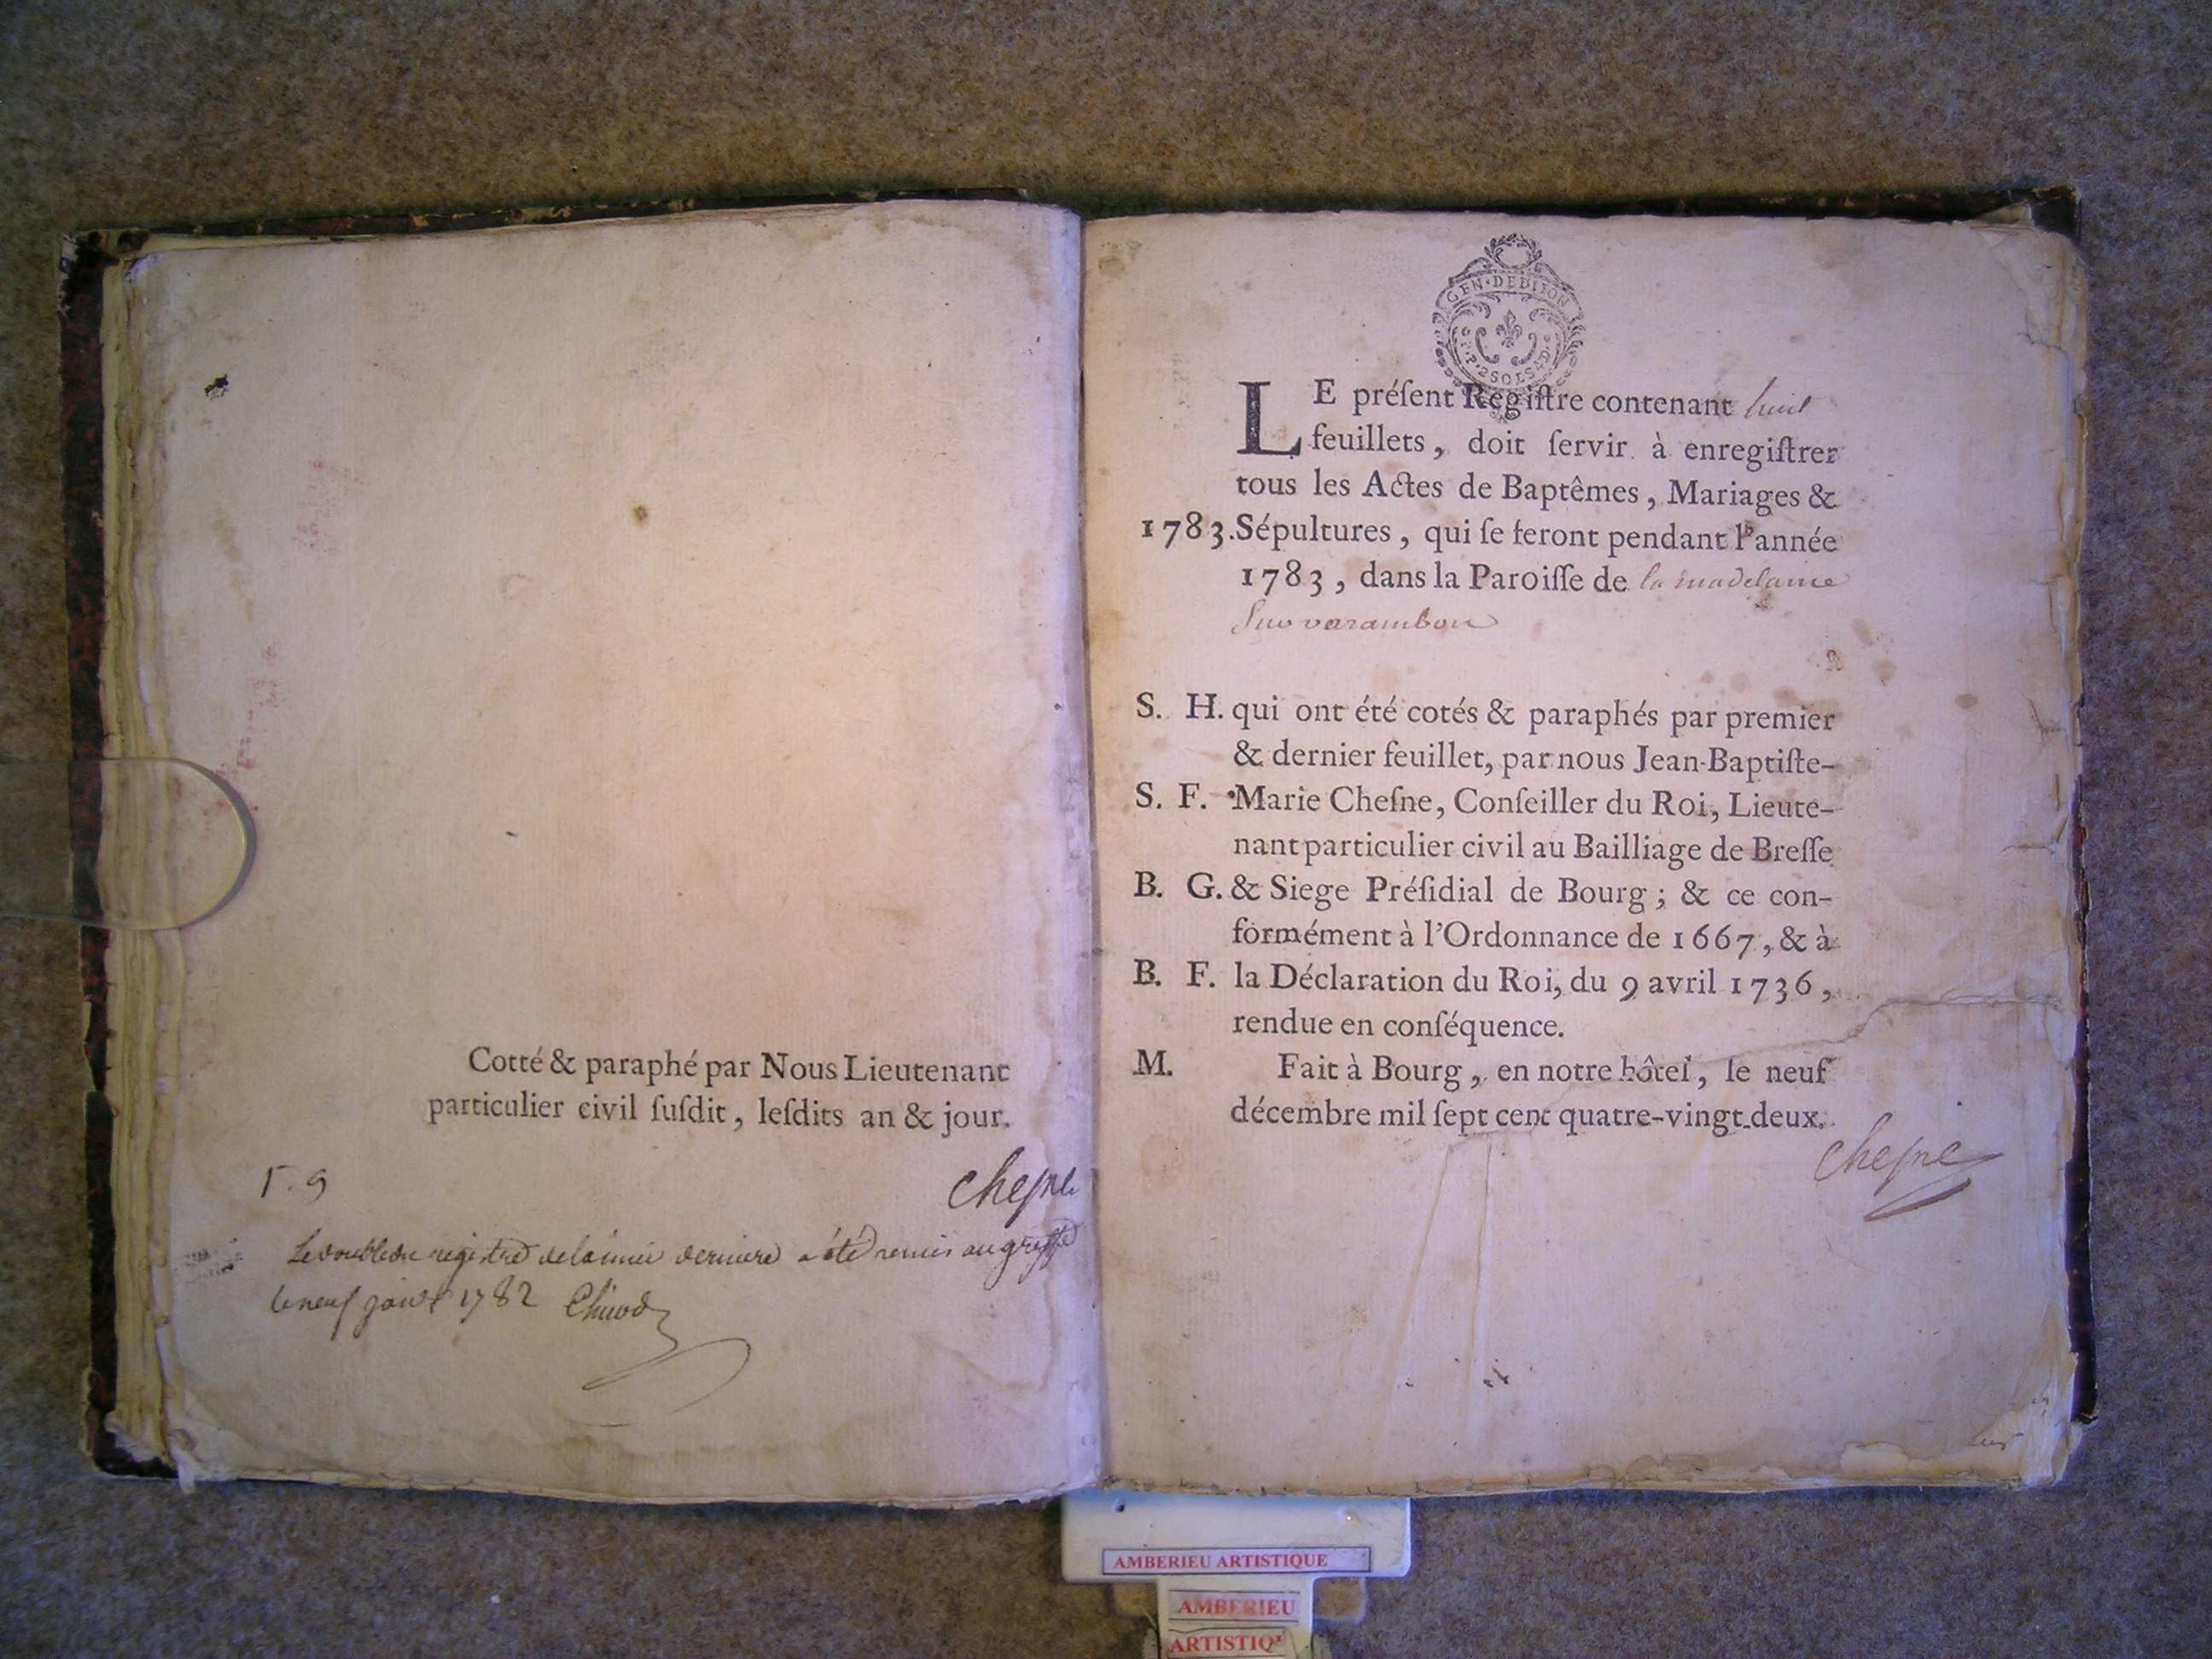 Cotté & paraphé par Nous Lieutenant
particulier civil ſuſdit, leſdits an & jour.
Cheſne
Le double du registre de l'année derniere a été remis au greffe
le neuf janvr 1782
GEN·DEDIJON
2SOLS
LE préſent Regiſtre contenant huit
feuillets, doit ſervir à enregiſtrer
tous les Actes de Baptêmes, Mariages &
1783. Sépultures, qui ſe feront pendant l'année
1783, dans la Paroiſſe de la madelaine
Sur varambon
S. H. qui ont été cotés & paraphés par premier
& dernier feuillet, par nous Jean-Baptiſte-
S. F. Marie Cheſne, Conſeiller du Roi, Lieute-
nant particulier civil au Bailliage de Breſſe
B. G. & Siege Préſidial de Bourg; & ce con-
formément à l'Ordonnance de 1667, & à
B. F. la Déclaration du Roi, du 9 avril 1736,
rendue en conſéquence.
M. Fait à Bourg, en notre hôtel, le neuf
décembre mil ſept cent quatre-vingt-deux.
Cheſne
AMBERIEU ARTISTIQUE
AMBERIEU
ARTISTIQ